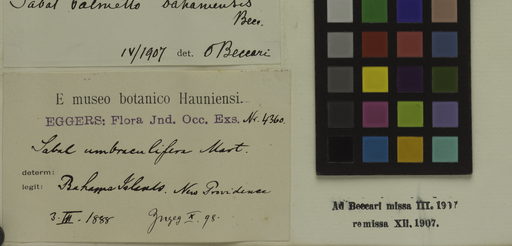 Sabal Palmetto bahamensis
Becc.
IV/1907 det. O Beccari
E museo botanico Hauniensi.
EGGERS: Flora Jnd. Occ. Exs. Nr. 4360.
Sabal umbraculifera Mart.
determ:
legit: Bahama Islands. New Providence
3. III. - 1888
Ad Beccari missa III. 1907
remissa XII, 1907.